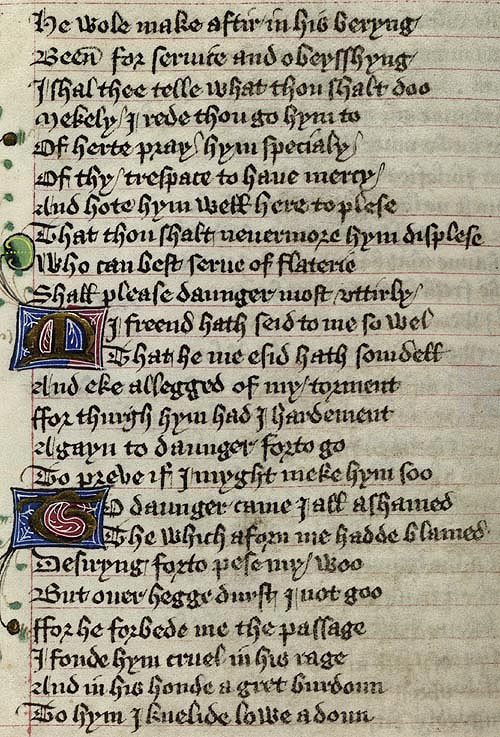 He wole make aftir in his beryng
Been for seruice and obeysshyng
I shal thee telle what thou shalt doo
Mekely / I rede thou go hym to
Of herte pray / hym specialy /
Of thy / trespace to haue mercy /
And hote hym well here to plese
That thou shalt neuermore hym displese
Who can best serue of flaterie
Shall please daunger most vttirly /
MI freend hath seid to me so wel
That he me esid hath somdell
And eke allegged of my / torment
ffor thurgh hym had I hardement
Agayn to daunger forto go
To preve if I myght meke hym soo
TO daunger came I all ashamed
The which aforn me hadde blamed
Desiryng forto pese my / woo
But ouer hegge durst I not goo
ffor he forbede me the passage
I fonde hym cruel in his rage
And in his honde a gret burdoun
To hym I knelide lowe a doun